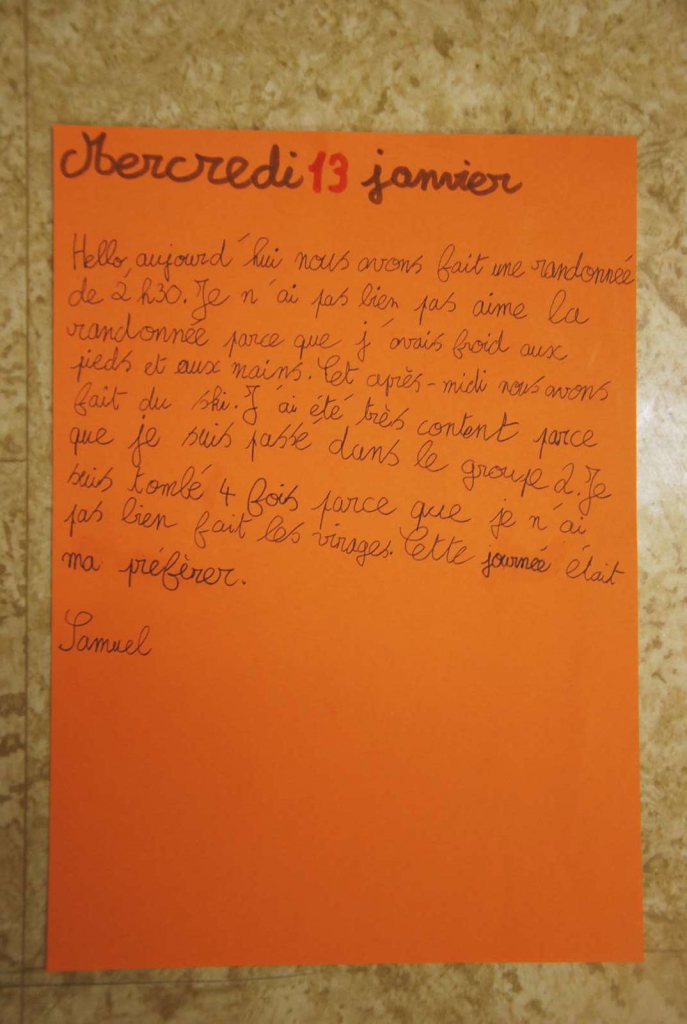 Mercredi 13 janvier
Hello, aujourd'hui nous avons fait une randonnée
de 2 h30. Je n'ai pas bien pas aime la
randonnée parce que j'avais froid aux
pieds et aux mains. Cet après-midi nous avons
fait du ski. J'ai été très content parce
que je suis passé dans le groupe 2. Je
suis tombé 4 fois parce que je n'ai
pas bien fait les virages. Cette journée était
ma préfèrer.
Samuel